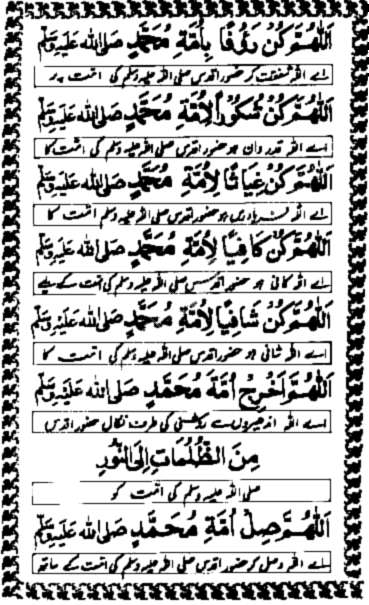 اَللّٰهُمَّ كُنْ رَؤُفًا بِاُمَّةِ مُحَمَّدٍ صَلَی اللّٰه عَلَیْهِ وَسَلَّم
اے اللہ شفقت کر حضور اقدس صلی اللہ علیہ وسلم کی امت پر
اَللّٰهُمَّ كُنْ شَكُوْرًا لِاُمَّةِ مُحَمَّدٍ صَلَی اللّٰه عَلَیْهِ وَسَلَّم
اے اللہ قدر دان ہو حضور اقدس صلی اللہ علیہ وسلم کی امت کا
اَللّٰهُمَّ كُنْ غِيَاثًا لِاُمَّةِ مُحَمَّدٍ صَلَی اللّٰه عَلَیْهِ وَسَلَّم
اے اللہ فریادرس ہو حضور اقدس صلی اللہ علیہ وسلم کی امت کا
اَللّٰهُمَّ كُنْ كَافِيًا لِاُمَّةِ مُحَمَّدٍ صَلَی اللّٰه عَلَیْهِ وَسَلَّم
اے اللہ کافی ہو حضور اقدس صلی اللہ علیہ وسلم کی امت کے لیے
اَللّٰهُمَّ كُنْ شَافِيًا لِاُمَّةِ مُحَمَّدٍ صَلَی اللّٰه عَلَیْهِ وَسَلَّم
اے اللہ شافی ہو حضور اقدس صلی اللہ علیہ وسلم کی امت کا
اَللّٰهُمَّ اَخْرِجْ اُمَّةَ مُحَمَّدٍ صَلَی اللّٰه عَلَیْهِ وَسَلَّم
اے اللہ اندھیروں سے روشنی کی طرف نکال حضور اقدس
مِنَ الظُّلُمَاتِ اِلَى النُّوْرِ
صلی اللہ علیہ وسلم کی امت کو
اَللّٰهُمَّ صِلْ اُمَّةَ مُحَمَّدٍ صَلَی اللّٰه عَلَیْهِ وَسَلَّم
اے اللہ وصل کر حضور اقدس صلی اللہ علیہ وسلم کی امت کے ساتھ